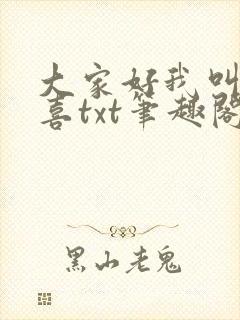 大家好我叫
喜txt笔趣阁
黑山老鬼